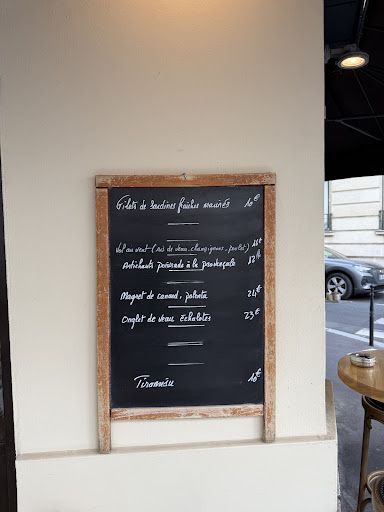 Filets de sardines fraîches marinés 10€
Vol au vent (ris de veau, champignons, poulet)
Artichauts poivrade à la provençale 12€
Magret de canard, polenta 24€
Onglet de veau échalotes 23€
Tiramisu 10€